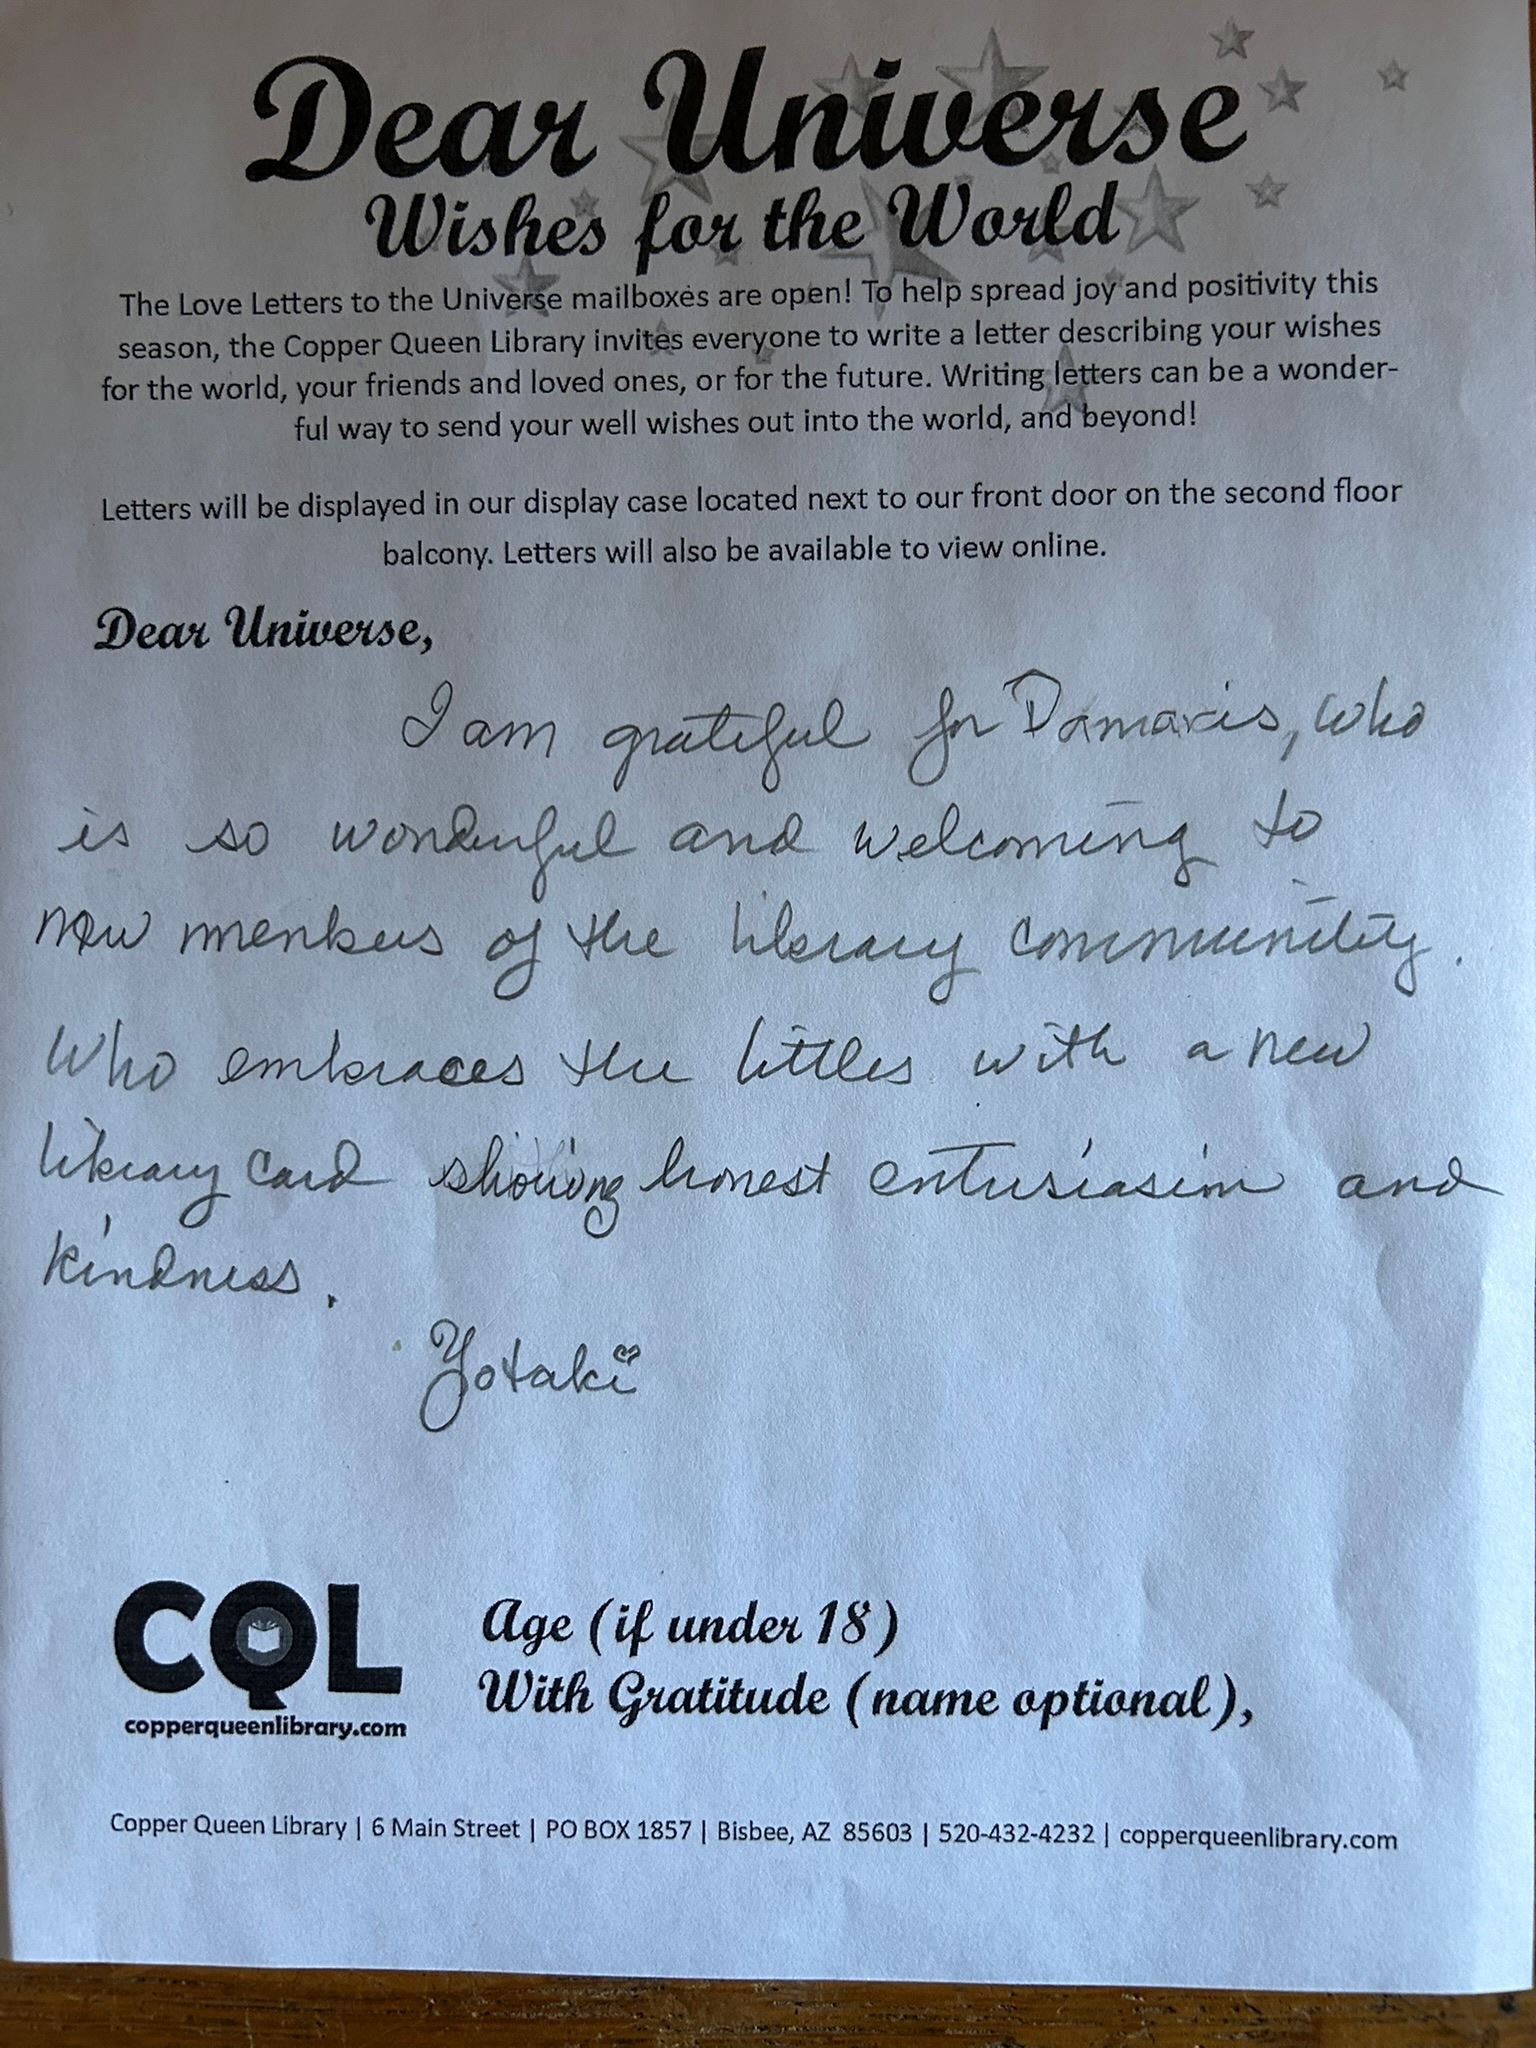 Dear Universe
Wishes for the World
The Love Letters to the Universe mailboxes are open! To help spread joy and positivity this
season, the Copper Queen Library invites everyone to write a letter describing your wishes
for the world, your friends and loved ones, or for the future. Writing letters can be a wonder-
ful way to send your well wishes out into the world, and beyond!
Letters will be displayed in our display case located next to our front door on the second floor
balcony. Letters will also be available to view online.
Dear Universe,
I am grateful for Damaris, who
is so wonderful and welcoming to
new members of the library community.
Who embraces the littles with a new
library card showing honest entusiasim and
kindness.
Yotaki
CQL
copperqueenlibrary.com
Age (if under 18)
With Gratitude (name optional),
Copper Queen Library | 6 Main Street | PO BOX 1857 | Bisbee, AZ 85603 | 520-432-4232 | copperqueenlibrary.com